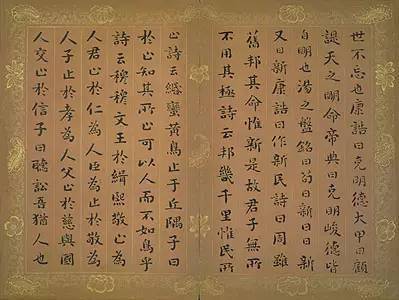 世不忘也康誥曰克明德大甲曰顧
諟天之明命帝典曰克明峻德皆
自明也湯之盤銘曰苟日新日日新
又日新康誥曰作新民詩曰周雖
舊邦其命惟新是故君子無所
不用其極詩云邦畿千里惟民所
止詩云緡蠻黃鳥止于丘隅子曰
於止知其所止可以人而不如鳥乎
詩云穆穆文王於緝熙敬止為
人君止於仁為人臣止於敬為
人子止於孝為人父止於慈與國
人交止於信子曰聽訟吾猶人也